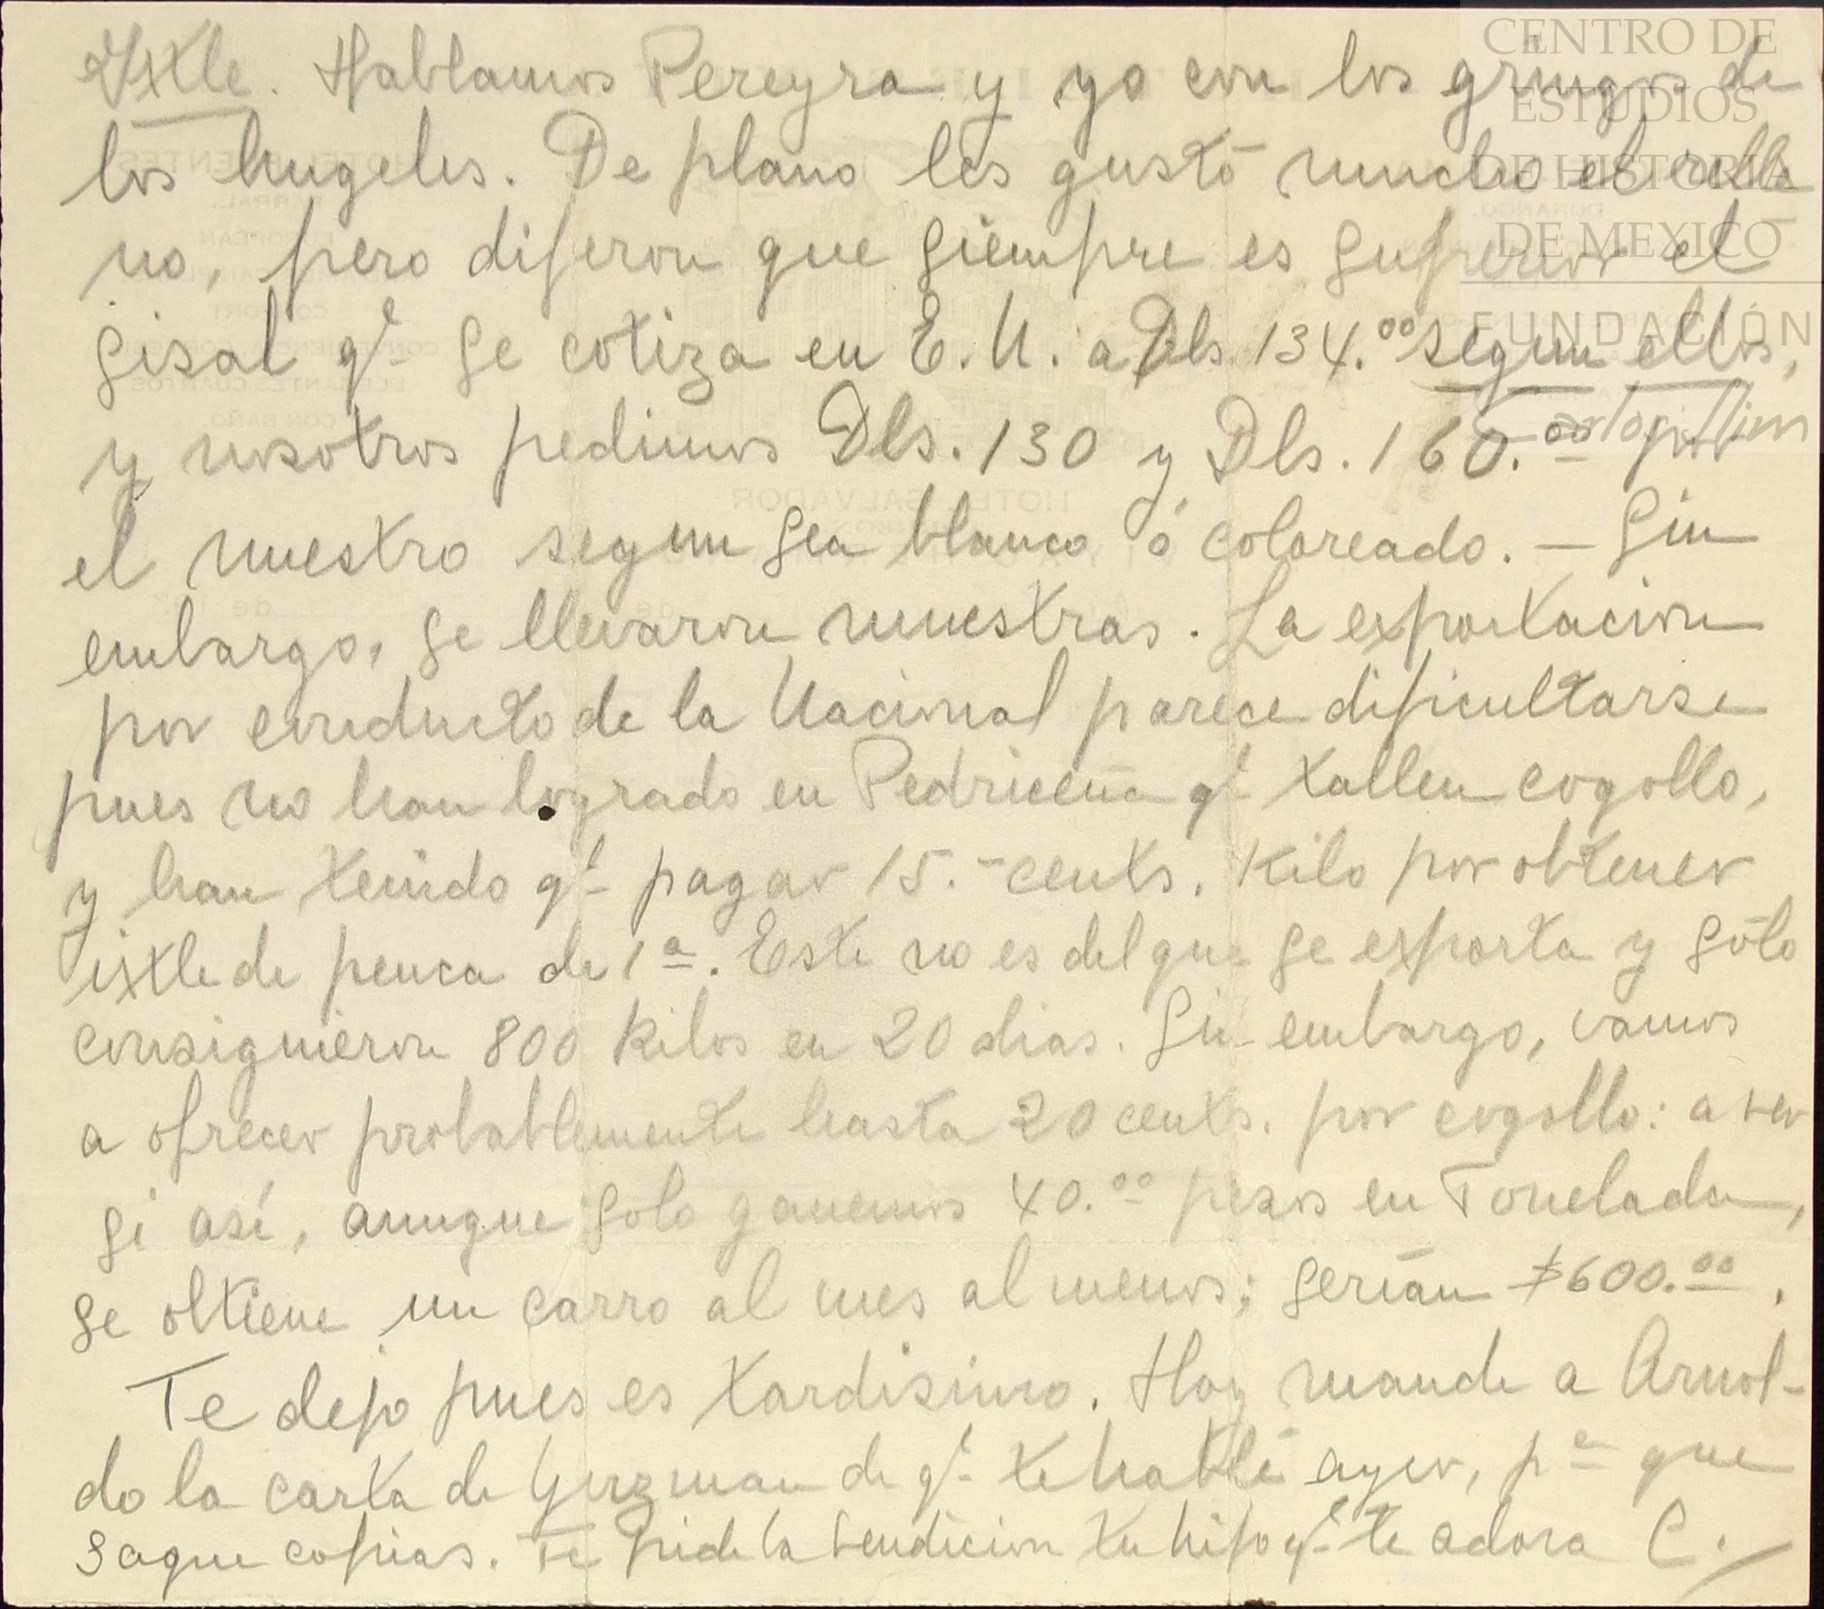 Ixtle. Hablamos Pereyra y yo con los gringos de
los Angeles. De plano les gustó mucho el relle
no, pero dijeron que siempre es superior el
sisal qe se cotiza en E. U. a Dls 134.00 segun ellos,
y nosotros pedimos Dls. 130 y Dls. 160.00 por
el nuestro segun sea blanco ó coloreado. — Sin
embargo, se llevaron muestras. La exportacion
por conducto de la Nacional parece dificultarse
pues no han logrado en Pedriceña qe tallen cogollo,
y han tenido qe pagar 15.- cents. Kilo por obtener
ixtle de penca de 1a. Este no es del que se exporta y sólo
consiguieron 800 Kilos en 20 dias. Sin embargo, vamos
a ofrecer probablemente hasta 20 cents. por cogollo: a ver
si así, aunque solo ganemos 40.00 pesos en Tonelada,
se obtiene un carro al mes al menos; serían $600.00.
Te dejo pues es tardisimo. Hoy mande a Arnol-
do la carta de Guzman de qe te hablé ayer, pa que
saque copias. Te pide la bendicion tu hijo qe te adora C.
CENTRO DE
ESTUDIOS
DE HISTORIA
DE MEXICO
FUNDACIÓN
Carlos Slim
HOTEL SALVADOR